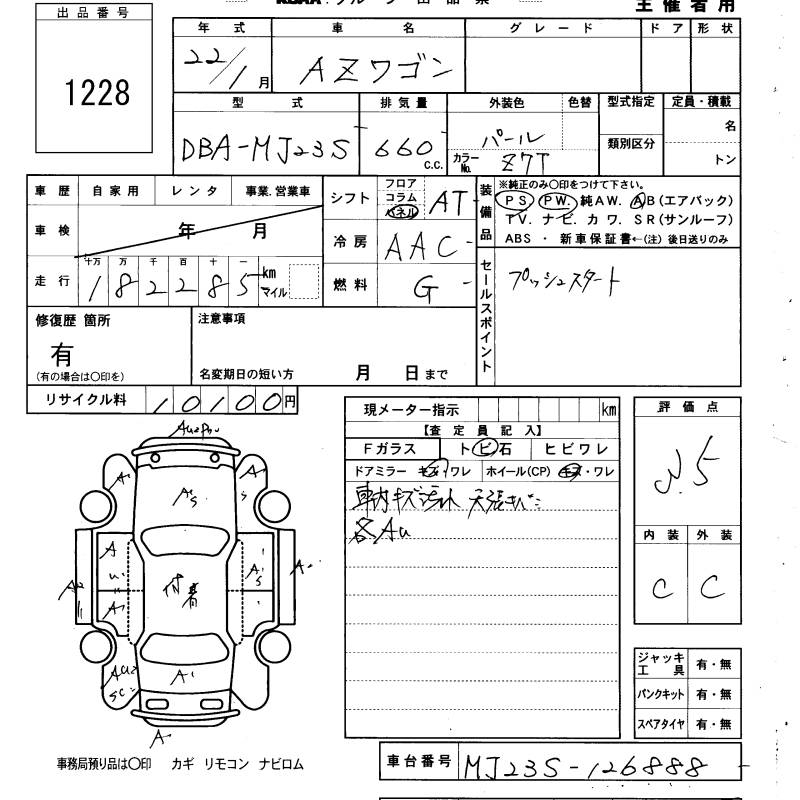 出品番号
1228
主催者用
年式 車名 グレード ドア 形状
22/1月 AZワゴン
型式 排気量 外装色 色替 型式指定 定員・積載
DBA-MJ23S 660c.c. パール 類別区分 名
カラーNo. Z7T トン
車歴 自家用 レンタ 事業.営業車
車検 年 月
走行 十万 万 千 百 十 一 km マイル
182285
シフト フロア コラム パネル AT
冷房 AAC
燃料 G
装備品
※純正のみ〇印をつけて下さい。
PS PW. 純AW. AB(エアバック)
TV. ナビ. カワ. SR(サンルーフ)
ABS ・ 新車保証書←(注) 後日送りのみ
セールスポイント
プッシュスタート
修復歴 箇所
有
(有の場合は〇印を)
注意事項
名変期日の短い方 月 日まで
リサイクル料 10100円
現メーター指示 km
【査定員記入】
Fガラス トビ石 ヒビワレ
ドアミラー キズ・ワレ ホイール(CP) キズ・ワレ
各AU
評価点
内装 外装
C C
A
A
A
付着
A
ジャッキ工具 有・無
パンクキット 有・無
スペアタイヤ 有・無
事務局預り品は〇印 カギ リモコン ナビロム
車台番号 MJ23S-126888